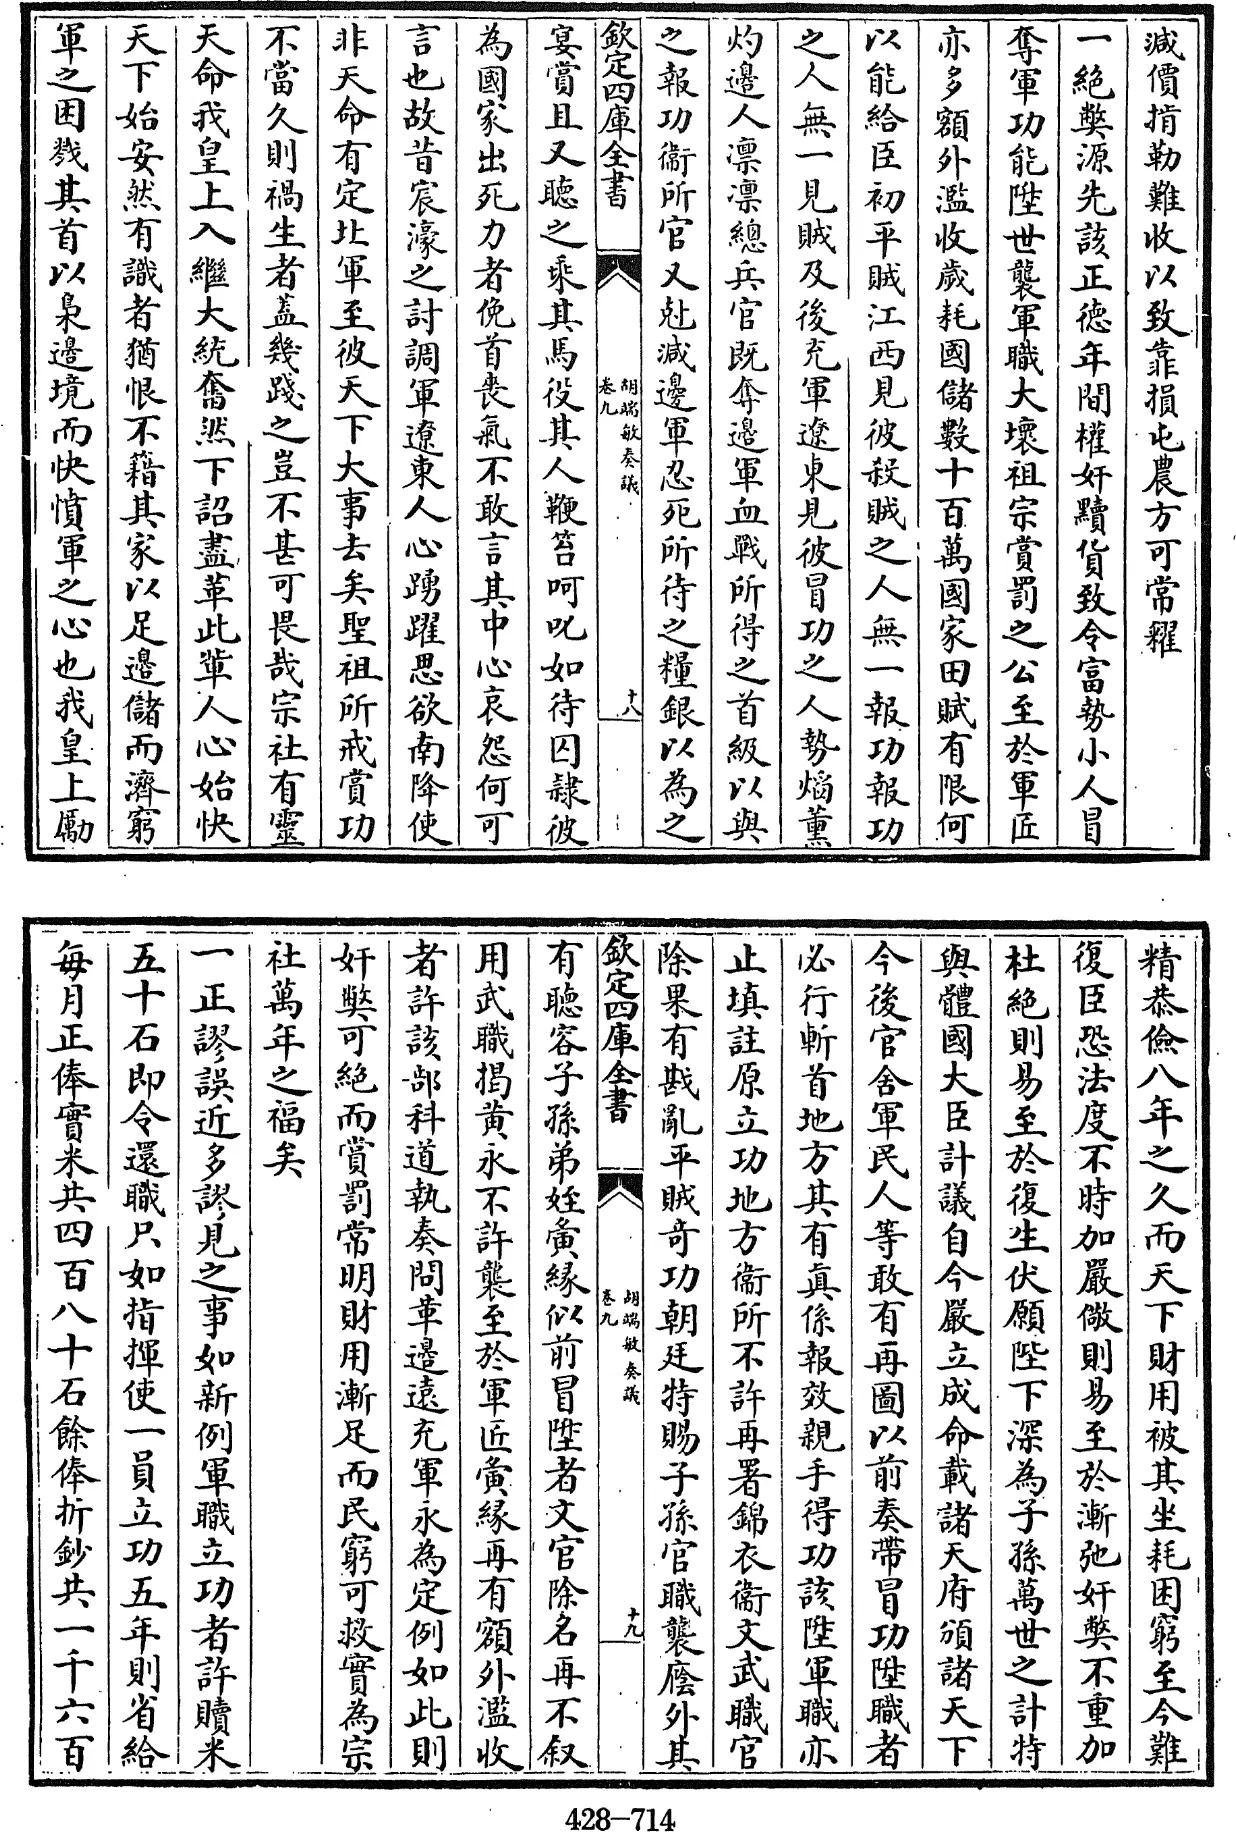 減價掯勒難收以致靠損屯農方可常糶
一絕弊源先該正德年間權奸黷貨致令富勢小人冒
奪軍功能陞世襲軍職大壞祖宗賞罰之公至於軍匠
亦多額外濫收歲耗國儲數十百萬國家田賦有限何
以能給臣初平賊江西見彼殺賊之人無一報功報功
之人無一見賊及後充軍遼東見彼冒功之人勢焰薰
灼邊人凛凛總兵官既奪邊軍血戰所得之首級以與
之報功衞所官又尅減邊軍忍死所待之糧銀以為之
欽定四庫全書
胡端敏奏議
卷九
十八
宴賞且又聽之乘其馬役其人鞭笞呵叱如待囚隸彼
為國家出死力者俛首喪氣不敢言其中心哀怨何可
言也故昔宸濠之討調軍遼東人心踴躍思欲南降使
非天命有定北軍至彼天下大事去矣聖祖所戒賞功
不當久則禍生者蓋幾踐之豈不甚可畏哉宗社有靈
天命我皇上入繼大統奮然下詔盡革此輩人心始快
天下始安然有識者猶恨不籍其家以足邊儲而濟窮
軍之困戮其首以梟邊境而快憤軍之心也我皇上勵
精恭儉八年之久而天下財用被其坐耗困窮至今難
復臣恐法度不時加嚴儆則易至於漸弛奸弊不重加
杜絕則易至於復生伏願陛下深為子孫萬世之計特
與體國大臣計議自今嚴立成命載諸天府頒諸天下
今後官舍軍民人等敢有再圖以前奏帶冒功陞職者
必行斬首地方其有真係報效親手得功該陞軍職亦
止填註原立功地方衞所不許再署錦衣衞文武職官
除果有戡亂平賊奇功朝廷特賜子孫官職襲廕外其
欽定四庫全書
胡端敏奏議
卷九
十九
有聽容子孫弟姪夤緣似前冒陞者文官除名再不叙
用武職揭黃永不許襲至於軍匠夤緣再有額外濫收
者許該部科道執奏問革邊遠充軍永為定例如此則
奸弊可絕而賞罰常明財用漸足而民窮可救實為宗
社萬年之福矣
一正謬誤近多謬見之事如新例軍職立功者許贖米
五十石即令還職只如指揮使一員立功五年則省給
每月正俸實米共四百八十石餘俸折鈔共一千六百
428-714